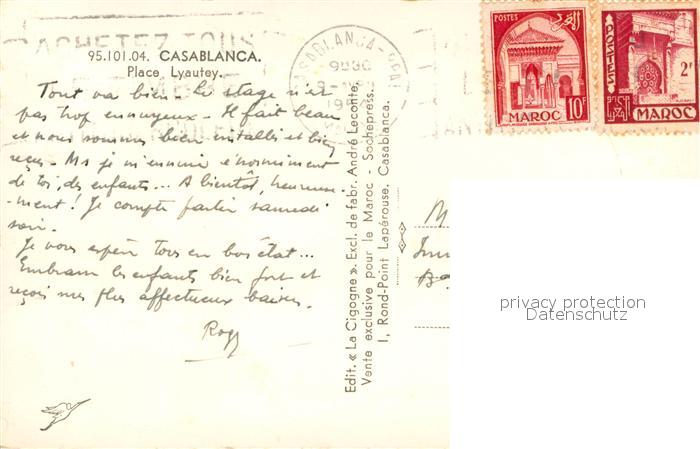 ACHETEZ TOUS
95.101.04. CASABLANCA.
Place Lyautey.
Tout va bien. Le stage n'est
pas trop ennuyeux. Il fait beau
et nous sommes bien installés et bien
reçus. Ms je m'ennuie énormément
de toi, des enfants... A bientôt, heureuse-
ment! Je compte partir samedi
soir.
Je vous espère tous en bon état...
Embrasse les enfants bien fort et
reçois mes plus affectueux baisers.
Edit. « La Cigogne ». Excl. de fabr. André Leconte.
Vente exclusive pour le Maroc - Sochepress.
1, Rond-Point Lapérouse. Casablanca.
CASABLANCA
POSTES
المغرب
10F
MAROC
POSTES
2F
MAROC
M
privacy protection
Datenschutz